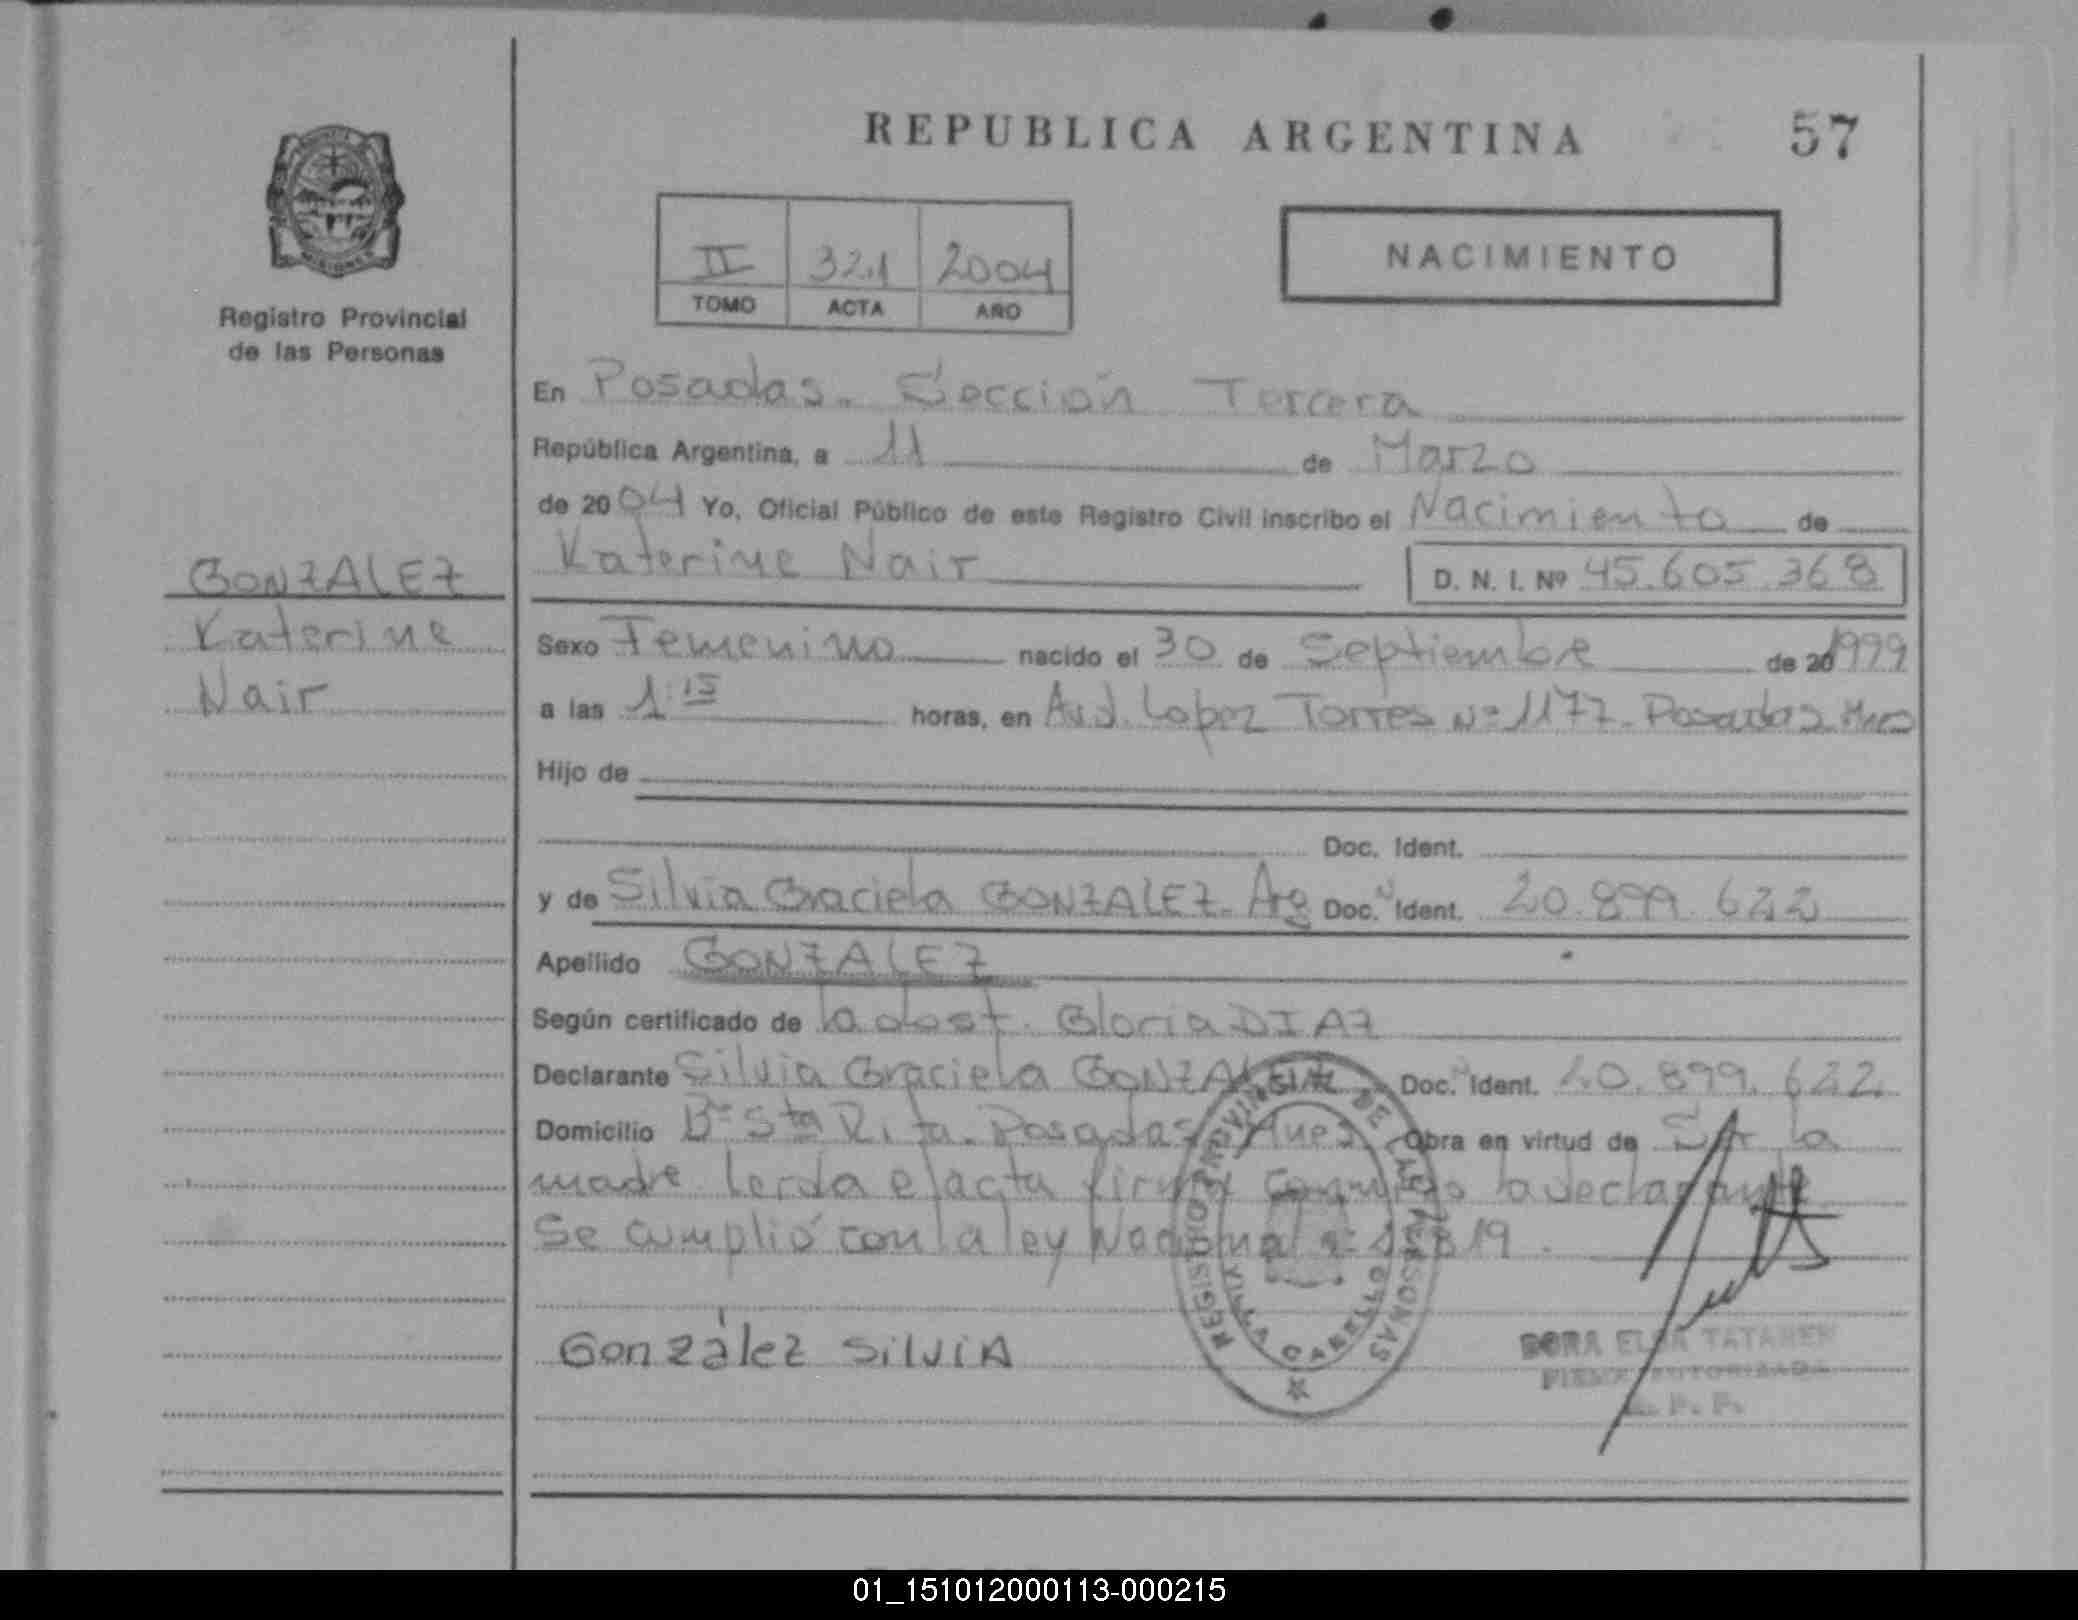 REPUBLICA ARGENTINA
57
II 321 2004
TOMO ACTA AÑO
NACIMIENTO
MISIONES
Registro Provincial
de las Personas
GONZALEZ
Katerine
Nair
En Posadas. Sección Tercera
República Argentina, a 11 de Marzo
de 2004 Yo, Oficial Público de este Registro Civil inscribo el Nacimiento de
Katerine Nair D. N. I. Nº 45.605.368
Sexo Femenino nacido el 30 de Septiembre de 20 1999
a las 1:15 horas, en Avd. Lopez Torres Nº 1177. Posadas. Mnes
Hijo de
Doc. Ident.
y de Silvia Graciela GONZALEZ. Arg Doc. Ident. 20.899.622
Apellido GONZALEZ
Según certificado de la obst. Gloria DIAZ
Declarante Silvia Graciela GONZALEZ Doc. Ident. 20.899.622
Domicilio Bº Sta Rita. Posadas, Mnes Obra en virtud de Ser la
madre. Leída el acta firma conmigo la declarante
Se cumplió con la ley Nacional
González SilviA
REGISTRO PROVINCIAL DE LAS PERSONAS
VILLA CABELLO
DORA ELSA
FIRMA AUTORIZADA
01_151012000113-000215